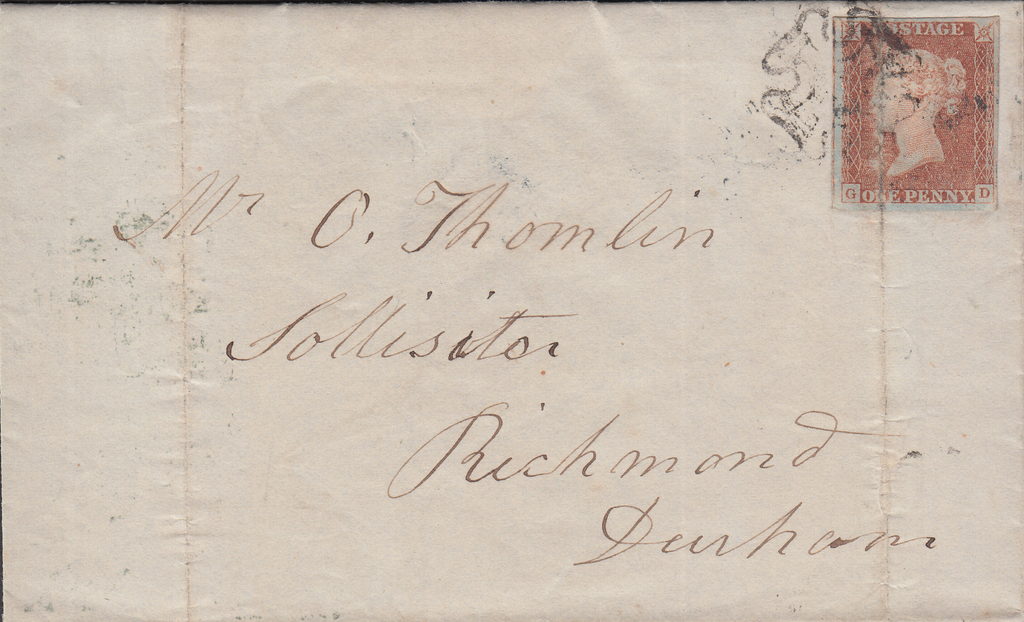 POSTAGE
G ONE PENNY. D
Mr O. Thomlin
Sollisiter
Richmond
Durham